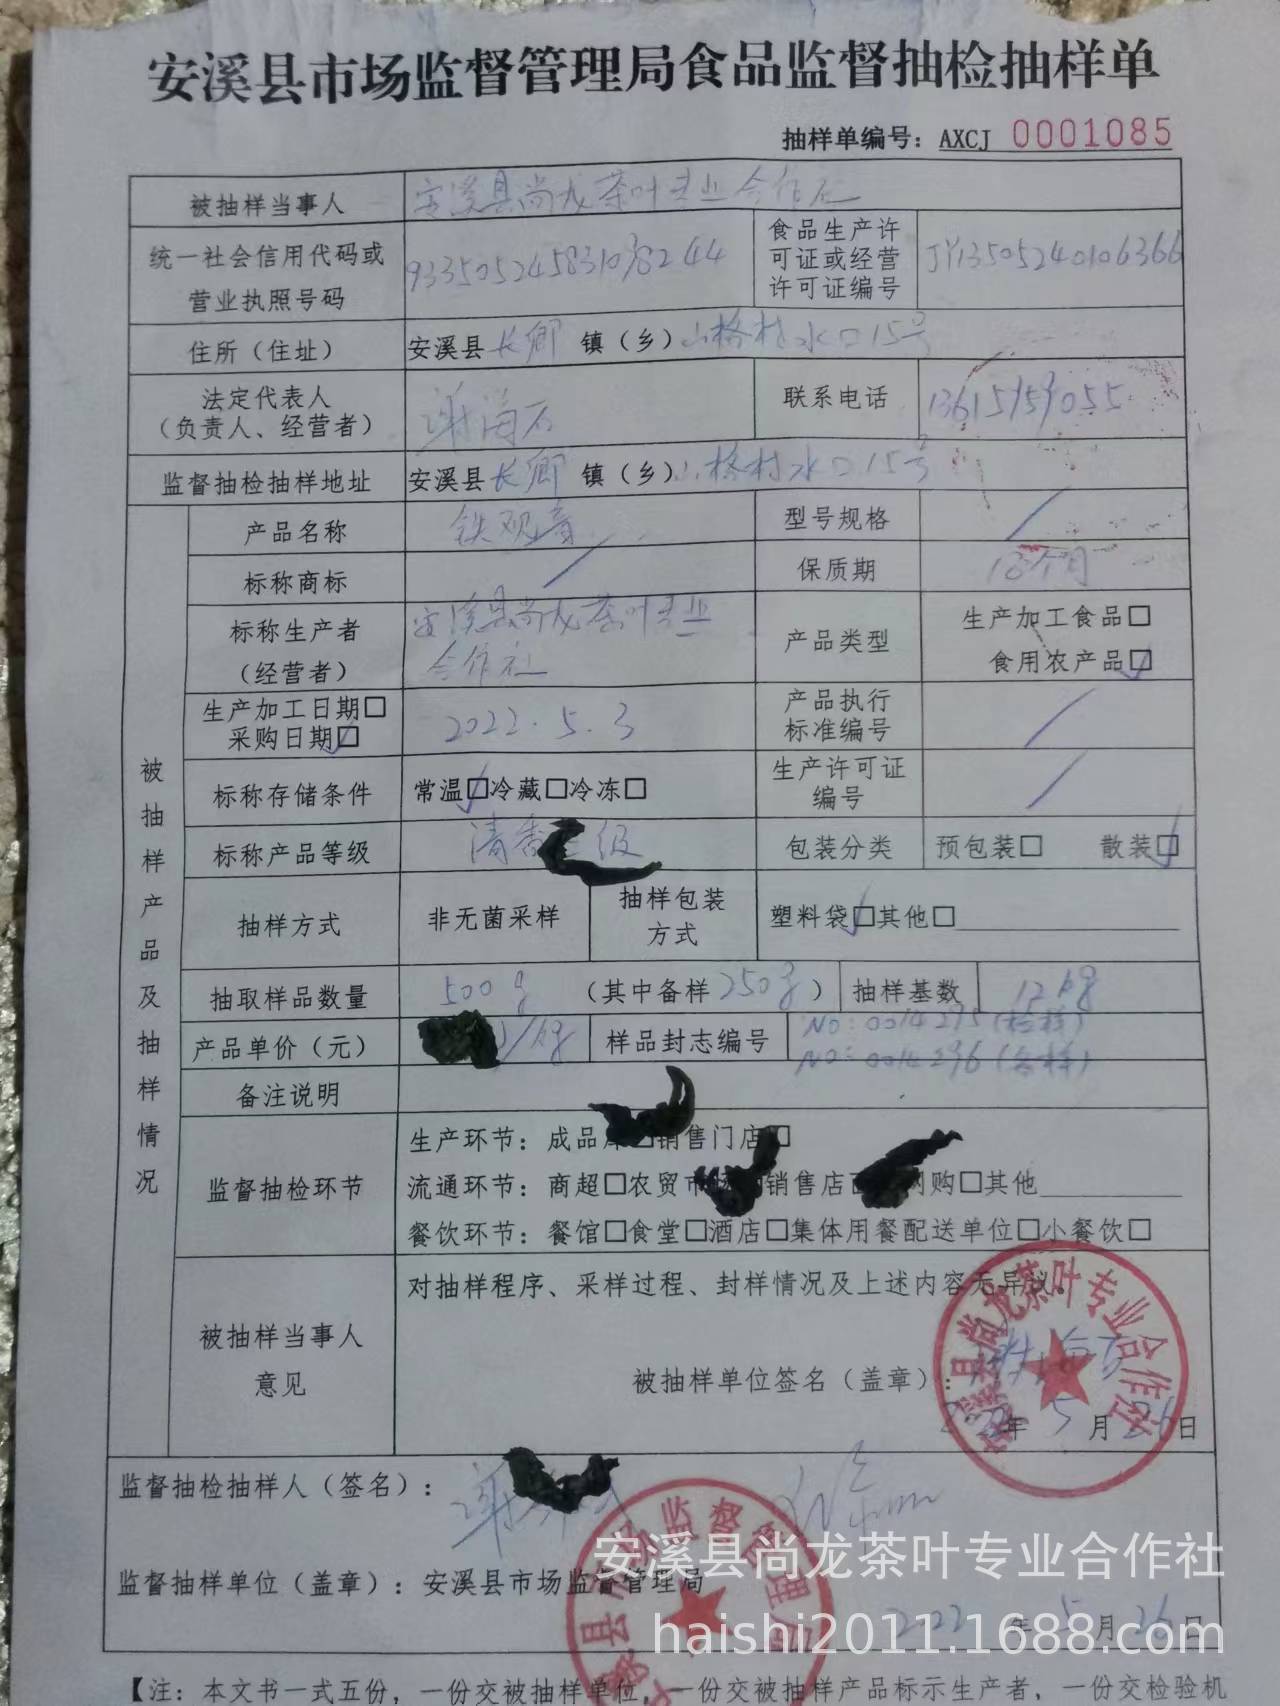 安溪县市场监督管理局食品监督抽检抽样单
抽样单编号：AXCJ 0001085
被抽样当事人 安溪县尚龙茶叶专业合作社
统一社会信用代码或营业执照号码 食品生产许可证或经营许可证编号 JY13505240106366
住所（住址） 安溪县长卿 镇（乡）山格村水口15号
法定代表人（负责人、经营者） 谢海石 联系电话 13615959055
监督抽检抽样地址 安溪县长卿 镇（乡）山格村水口15号
被抽样产品及抽样情况
产品名称 铁观音 型号规格 /
标称商标 / 保质期 18个月
标称生产者（经营者） 安溪县尚龙茶叶专业合作社 产品类型 生产加工食品□ 食用农产品☑
生产加工日期□ 采购日期☑ 2022.5.3 产品执行标准编号 /
标称存储条件 常温☑冷藏□冷冻□ 生产许可证编号 /
标称产品等级 清香 级 包装分类 预包装□ 散装☑
抽样方式 非无菌采样 抽样包装方式 塑料袋☑其他□
抽取样品数量 500g （其中备样250g） 抽样基数 12kg
产品单价（元） /kg 样品封志编号 NO:0014295(检样)
NO:0014296(备样)
备注说明
监督抽检环节 生产环节：成品 □销售门店□
流通环节：商超□农贸市场 销售店 网购□其他
餐饮环节：餐馆□食堂□酒店□集体用餐配送单位□小餐饮□
被抽样当事人意见 对抽样程序、采样过程、封样情况及上述内容无异议。
被抽样单位签名（盖章）：
2022年5月26日
安溪县尚龙茶叶专业合作社
监督抽检抽样人（签名）：谢
监督抽样单位（盖章）：安溪县市场监督管理局
2022年5月26日
安溪县尚龙茶叶专业合作社
haishi2011.1688.com
【注：本文书一式五份，一份交被抽样单位，一份交被抽样产品标示生产者，一份交检验机